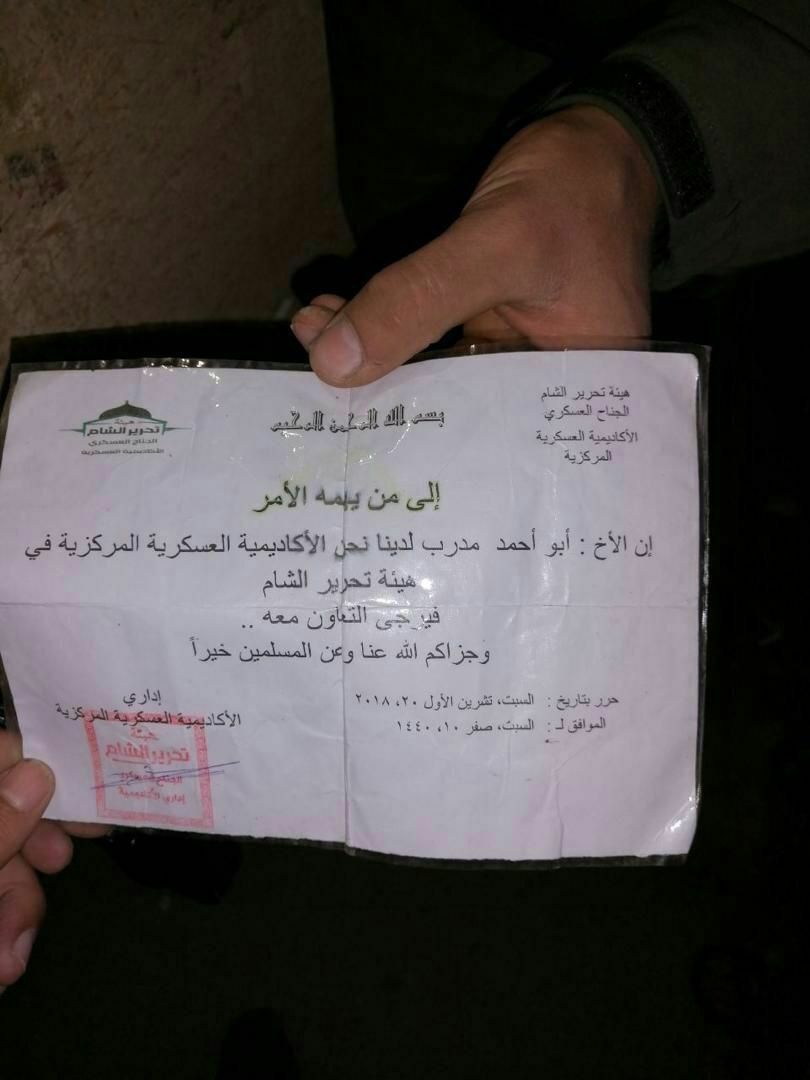 هيئة تحرير الشام
الجناح العسكري
الأكاديمية العسكرية
المركزية
بسم الله الرحمن الرحيم
هيئة
تحرير الشام
الجناح العسكري
الأكاديمية العسكرية
إلى من يهمه الأمر
إن الأخ : أبو أحمد مدرب لدينا نحن الأكاديمية العسكرية المركزية في
هيئة تحرير الشام
فيرجى التعاون معه ..
وجزاكم الله عنا وعن المسلمين خيراً
حرر بتاريخ : السبت، تشرين الأول ٢٠، ٢٠١٨
الموافق لـ : السبت، صفر ١٠، ١٤٤٠
إداري
الأكاديمية العسكرية المركزية
هيئة
تحرير الشام
الجناح العسكري
إداري الأكاديمية